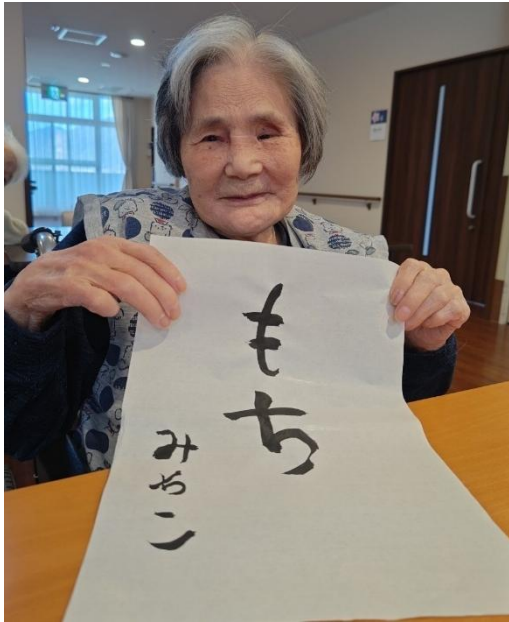 もち
みちこ